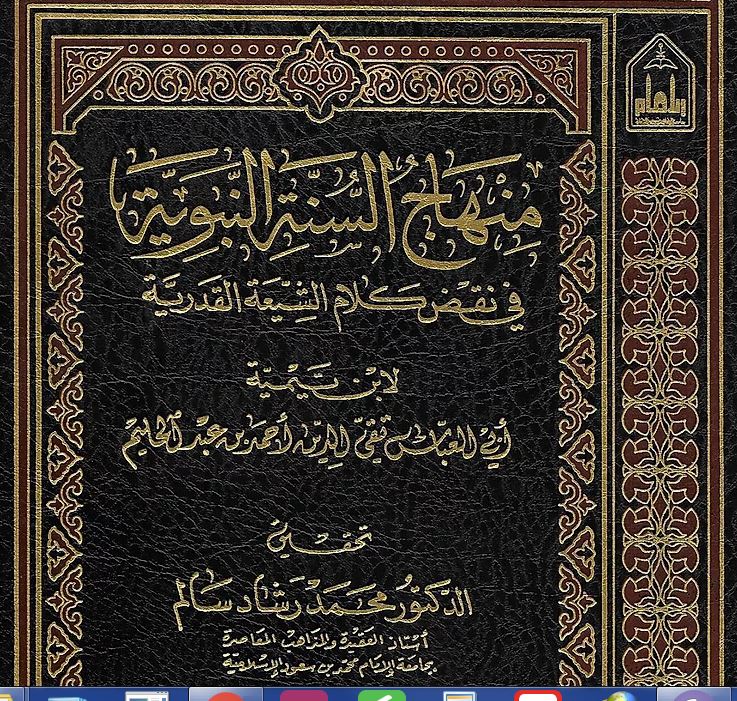 مِنْهَاجُ السُّنَّةِ النَّبَوِيَّةِ
في نقض كلام الشِّيعَة القَدَرِيَّة
لابن تيميّة
أبي العبّاس تقيّ الدِّين أحمد بن عبد الحليم
تحقيق
الدكتور محمّد رشاد سالم
أستاذ العقيدة والمذاهب المعاصرة
بجامعة الإمام محمّد بن سعود الإسلاميّة
الإمام